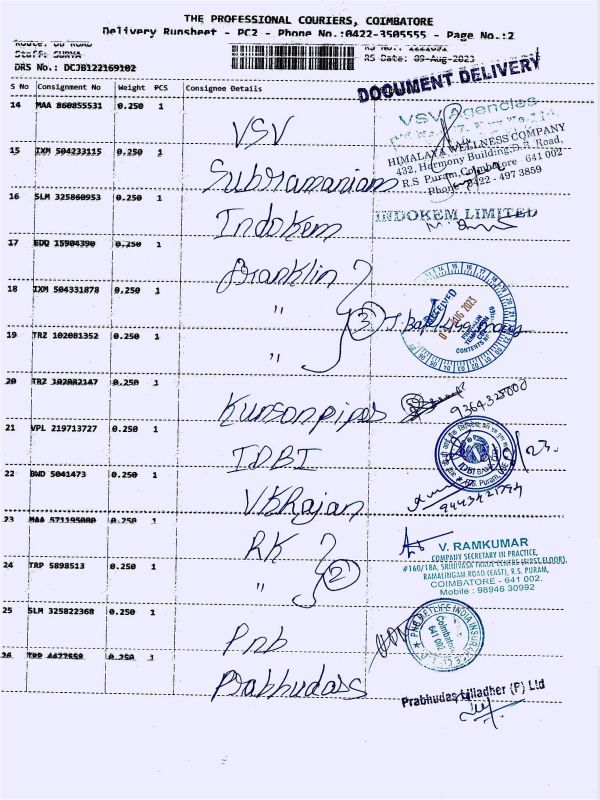 THE PROFESSIONAL COURIERS, COIMBATORE
Delivery Runsheet - PC2 - Phone No.:0422-3505555 - Page No.:2
Staff: SURYA
RS Date: 09-Aug-2023
DRS No.: DCJB122169102
DOCUMENT DELIVERY
S No Consignment No Weight PCS Consignee Details
14 MAA 860855531 0.250 1 VSV
VSV Agencies
15 IXM 504233115 0.250 1 Subramaniam
HIMALAYA WELLNESS COMPANY
432, Harmony Building, D.B. Road,
R.S. Puram, Coimbatore 641 002
Phone: 0422 - 497 3859
16 SLM 325860953 0.250 1 Indokem
INDOKEM LIMITED
17 EDQ 15904390 0.250 1 Franklin
18 IXM 504331878 0.250 1 " 3
RECEIVED
AUG 2023
19 TRZ 102081352 0.250 1 "
20 TRZ 102082147 0.250 1 Kunsonpipes
9364325000
21 VPL 219713727 0.250 1 IDBI
22 BWD 5041473 0.250 1 VKRajan
23 MAA 571195080 0.250 1 RK
V. RAMKUMAR
COMPANY SECRETARY IN PRACTICE,
#160/18A, SRINIVASA TRADE CENTRE (FIRST FLOOR),
RAMALINGAM ROAD (EAST), R.S. PURAM,
COIMBATORE - 641 002.
Mobile : 98946 30992
24 TRP 5898513 0.250 1 " 2
25 SLM 325822368 0.250 1 Pnb
PNB METLIFE INDIA INSU
Coimbatore
641 002
26 0.250 1 Prabhudass
Prabhudas Lilladher (P) Ltd